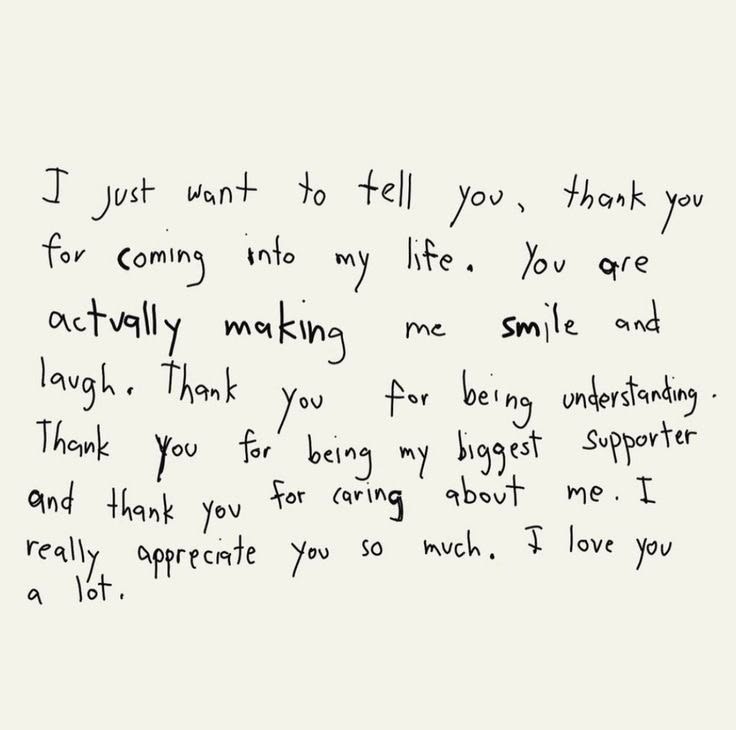 I just want to tell you, thank you
for coming into my life. You are
actually making me smile and
laugh. Thank you for being understanding.
Thank you for being my biggest supporter
and thank you for caring about me. I
really appreciate you so much. I love you
a lot.